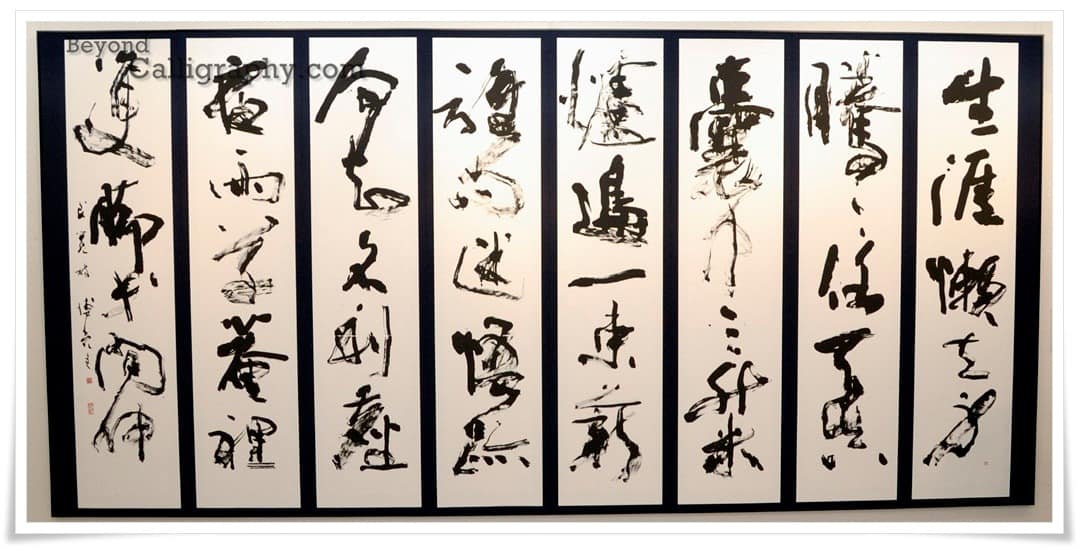 Beyond
Calligraphy.com
生涯懶立身
騰々任天真
囊中三升米
爐邊一束薪
誰問迷悟跡
何知名利塵
夜雨草菴裡
雙脚等閑伸
良寛詩